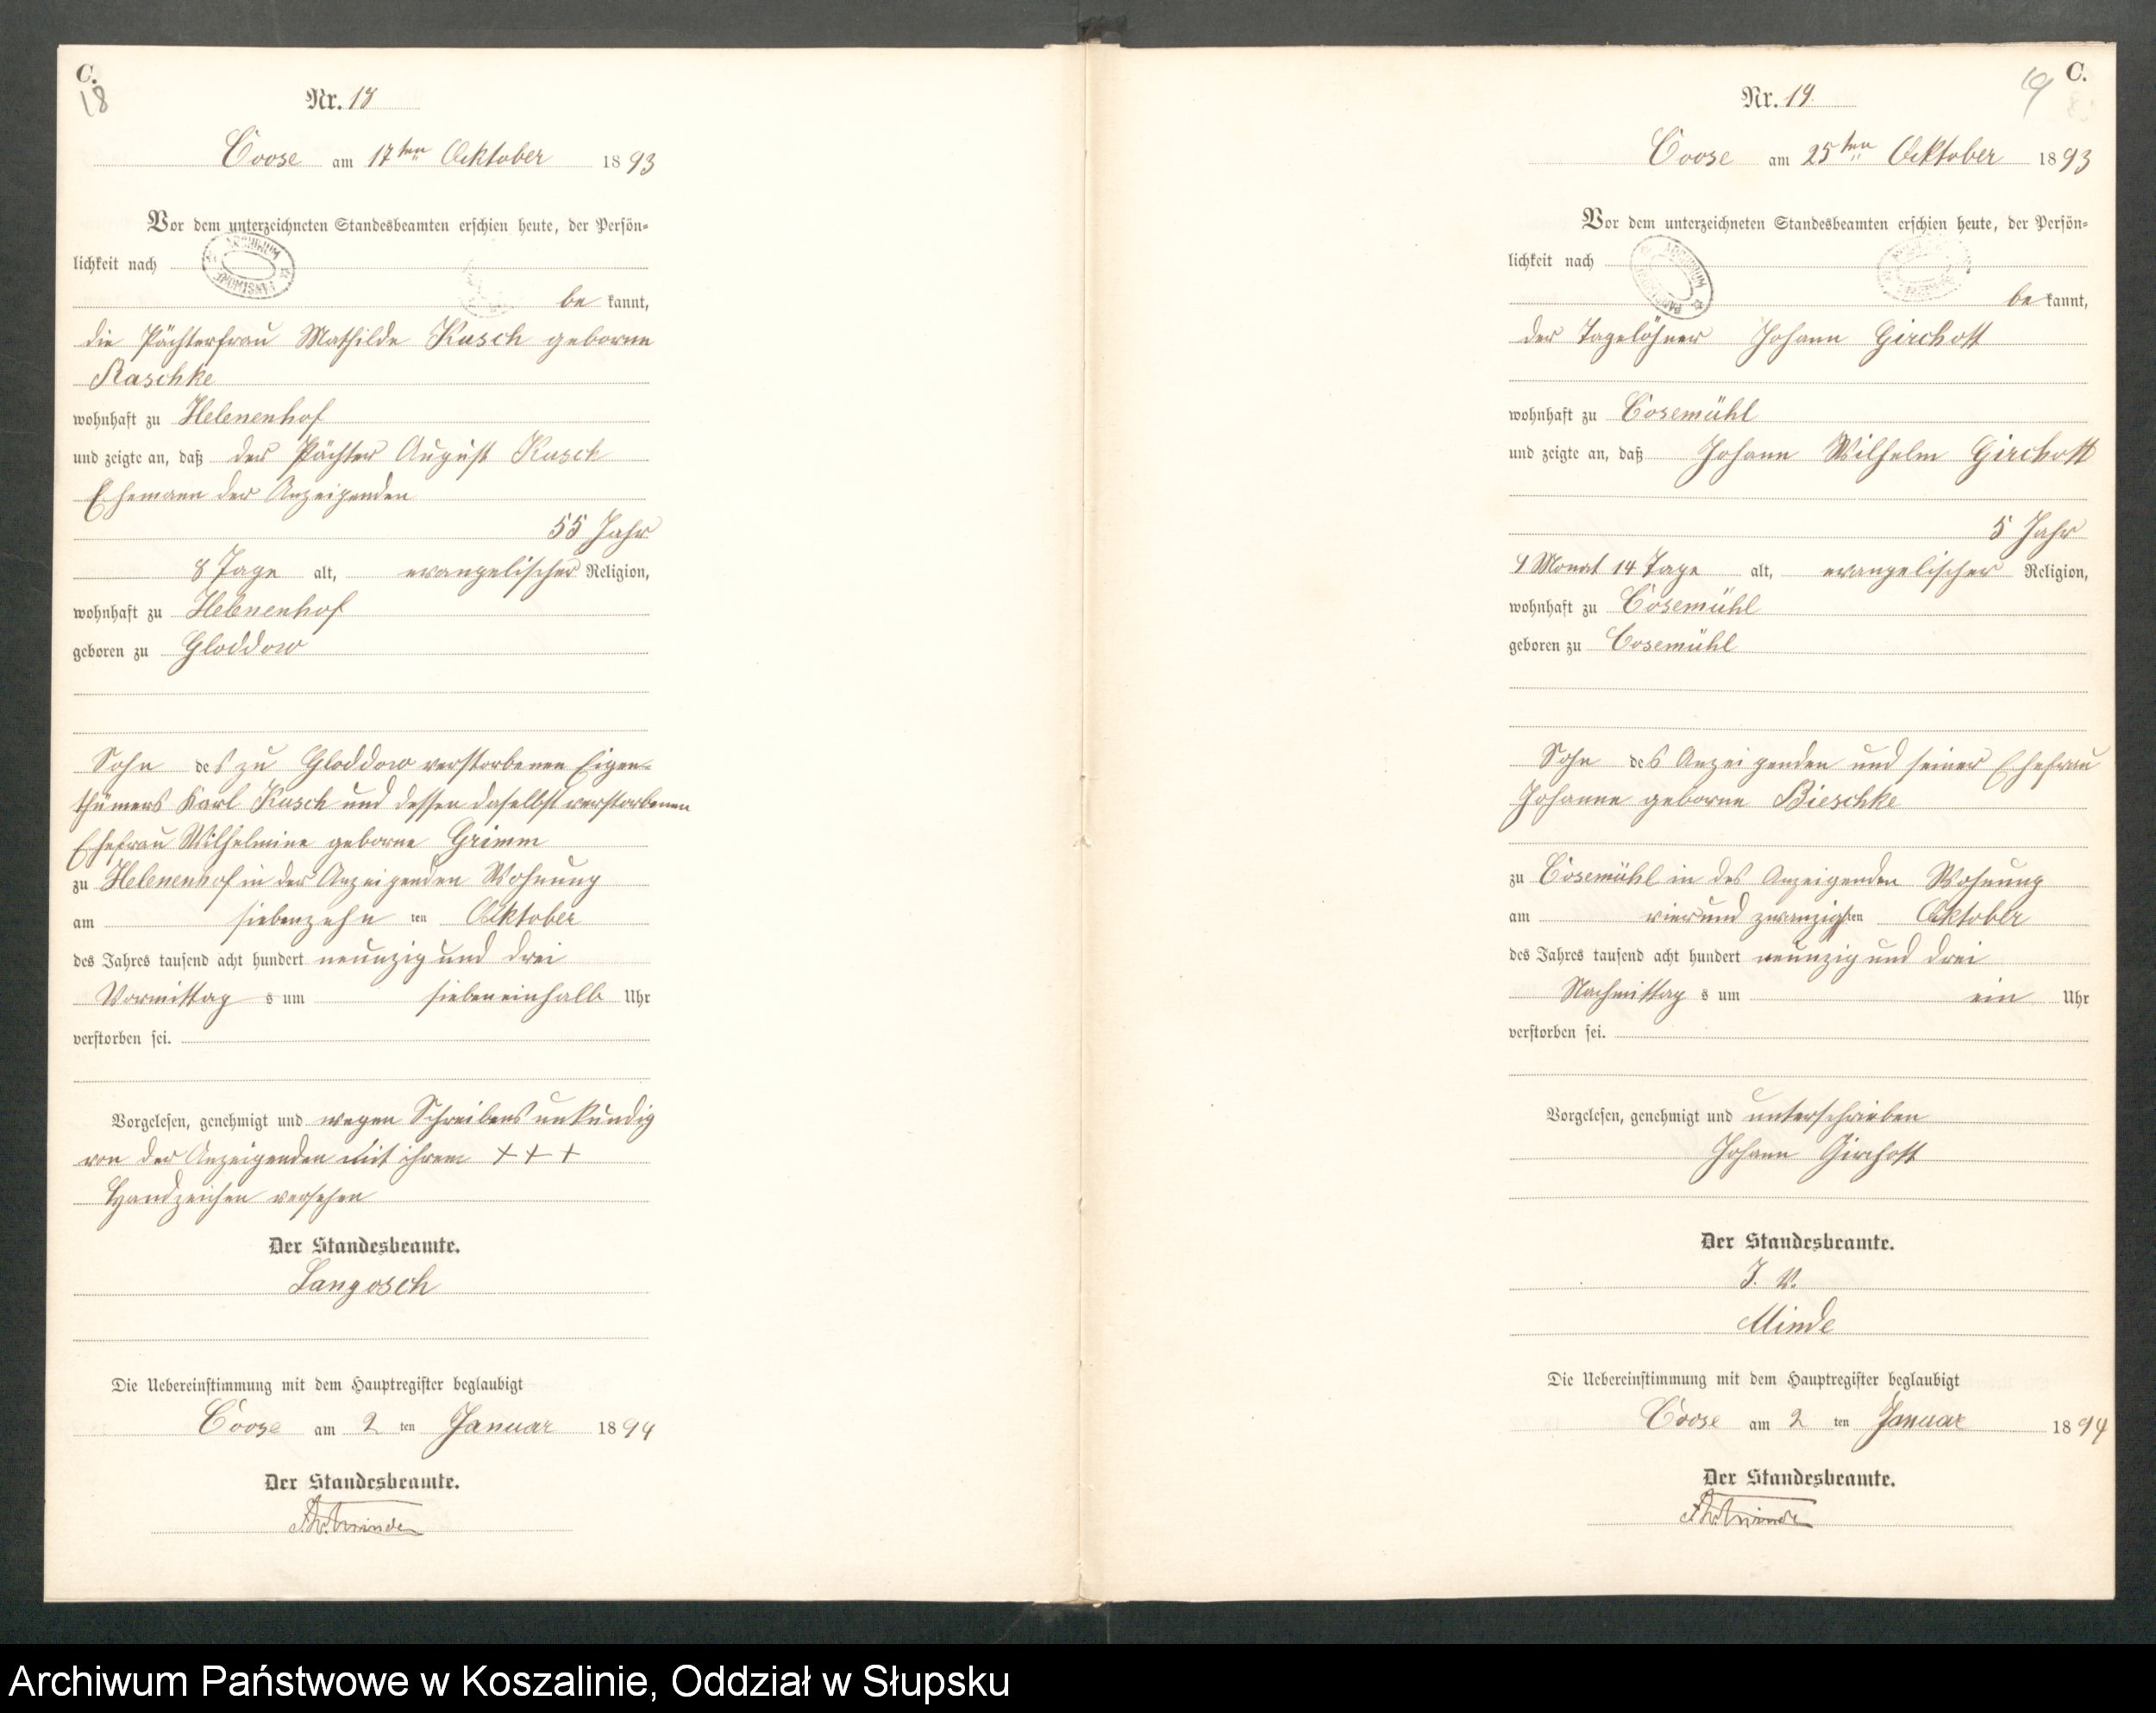 C.
18
Nr. 18
Coose am 17ten Oktober 1893
Vor dem unterzeichneten Standesbeamten erschien heute, der Persön-
lichkeit nach
be kannt,
die Pächterfrau Mathilde Kusch geborne
Raschke
wohnhaft zu Helenenhof
und zeigte an, daß der Pächter August Kusch
Ehemann der Anzeigenden
55 Jahr
8 Tage alt, evangelischer Religion,
wohnhaft zu Helenenhof
geboren zu Gloddow
Sohn des zu Gloddow verstorbenen Eigen-
thümers Karl Kusch und dessen daselbst verstorbenen
Ehefrau Wilhelmine geborne Grimm
zu Helenenhof in der Anzeigenden Wohnung
am siebenzehn ten Oktober
des Jahres tausend acht hundert neunzig und drei
Vormittag s um siebeneinhalb Uhr
verstorben sei.
Vorgelesen, genehmigt und wegen Schreibensunkundig
von der Anzeigenden mit ihrem + + +
Handzeichen versehen
Der Standesbeamte.
Langosch
Die Uebereinstimmung mit dem Hauptregister beglaubigt
Coose am 2 ten Januar 1894
Der Standesbeamte.
C.
19
Nr. 19.
Coose am 25ten Oktober 1893
Vor dem unterzeichneten Standesbeamten erschien heute, der Persön-
lichkeit nach
be kannt,
der Tagelöhner Johann Girchott
wohnhaft zu Cosemühl
und zeigte an, daß Johann Wilhelm Girchott
5 Jahr
1 Monat 14 Tage alt, evangelischer Religion,
wohnhaft zu Cosemühl
geboren zu Cosemühl
Sohn des Anzeigenden und seiner Ehefrau
Johanne geborne Bieschke
zu Cosemühl in des Anzeigenden Wohnung
am vierundzwanzigsten Oktober
des Jahres tausend acht hundert neunzig und drei
Nachmittag s um ein Uhr
verstorben sei.
Vorgelesen, genehmigt und unterschrieben
Johann Girchott
Der Standesbeamte.
J. V.
Minde
Die Uebereinstimmung mit dem Hauptregister beglaubigt
Coose am 2 ten Januar 1894
Der Standesbeamte.
Archiwum Państwowe w Koszalinie, Oddział w Słupsku